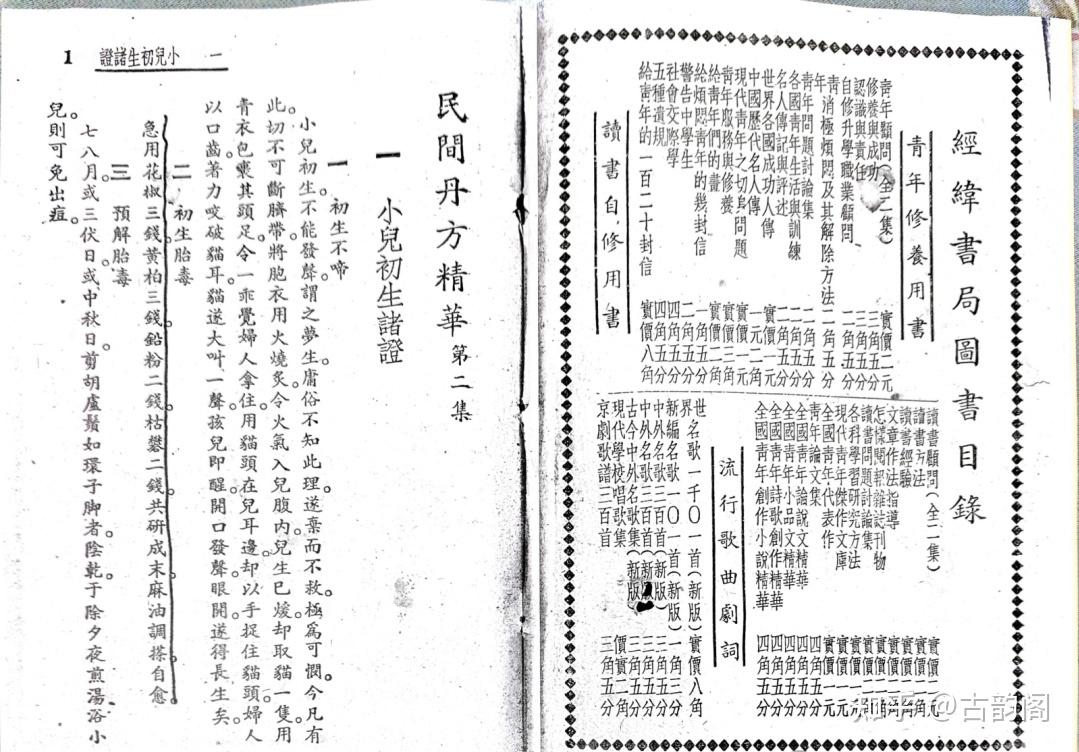 經緯書局圖書目錄
青年修養用書
青年顧問(全二集) 實價二元
修養與成功 三角五分
認識與責任 三角五分
自修升學職業顧問 二角五分
青年消極煩悶及其解除方法 二角五分
青年問題討論集 二角五分
各國青年生活與訓練 二角五分
名人傳記與評述 二角五分
世界各國成功人傳 實價一元
中國歷代名人傳 一元二角
現代青年之切身問題 實價一元
青年服務與修養 實價三角
給青年們的書 實價二角
給煩悶青年的幾封信 一角五分
警告中學生 二角五分
社會交際學 四角五分
五種遺規 四角五分
給青年的一百二十封信 實價八角
讀書自修用書
讀書顧問(全二集) 實價二元
讀書方法 實價二角
讀書經驗 實價二角
文章作法指導 實價二角
怎樣閱報雜誌刊物 實價二角
讀書問題討論集 實價二角
各科學習研究方法 實價
現代青年傑作文庫 實價一元
全國青年代表作 實價一元
青年論文集 四角五分
全國青年論說文精華 四角五分
全國青年小品文精華 四角五分
全國青年詩歌創作精華 四角五分
全國青年創作小說精華 四角五分
流行歌曲劇詞
世界名歌一千〇一首(新版) 實價八角
新編名歌一〇一首(新版) 一角三分
中外名歌三百首(新版) 三角五分
中外名歌二百首(新版) 三角五分
古今中外名歌集(新版)
現代學校唱歌集 實價二角
京劇歌譜三百首 三角五分
民間丹方精華 第二集
一 小兒初生諸證
一 初生不啼
小兒初生。不能發聲。謂之夢生。庸俗不知此理。遂棄而不救。極為可憫。今凡有
此。切不可斷臍帶。將胞衣用火燒炙。令火氣入兒腹內。兒生已煖。却取貓一隻。用
青衣包裹其頭足。令一乖覺婦人拿住。用貓頭在兒耳邊。却以手捉住貓頭。婦人
以口齒著力咬破貓耳。貓遂大叫一聲。孩兒即醒。開口發聲。眼開。遂得長生矣。
二 初生胎毒
急用花椒三錢。黃柏三錢。鉛粉二錢。枯礬二錢。共研成末。麻油調搽自愈。
三 預解胎毒
七八月。或三伏日。或中秋日。剪胡盧鬚如環子脚者。陰乾。于除夕夜煎湯浴小
兒。則可免出痘。
一 小兒初生諸證 1
知乎 @古韵阁